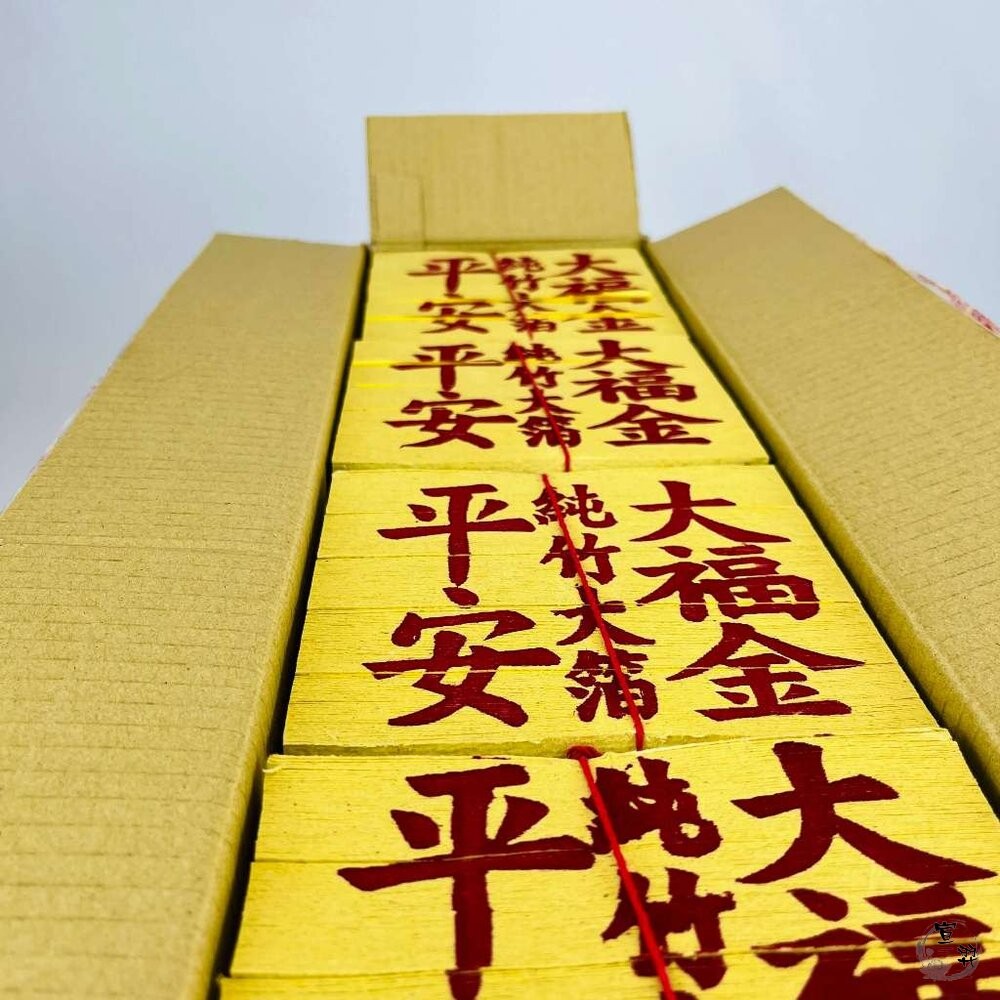 大福金
純竹大箔
平安
大福金
純竹大箔
平安
大福金
純竹大箔
平安
大福
純竹
平
宣